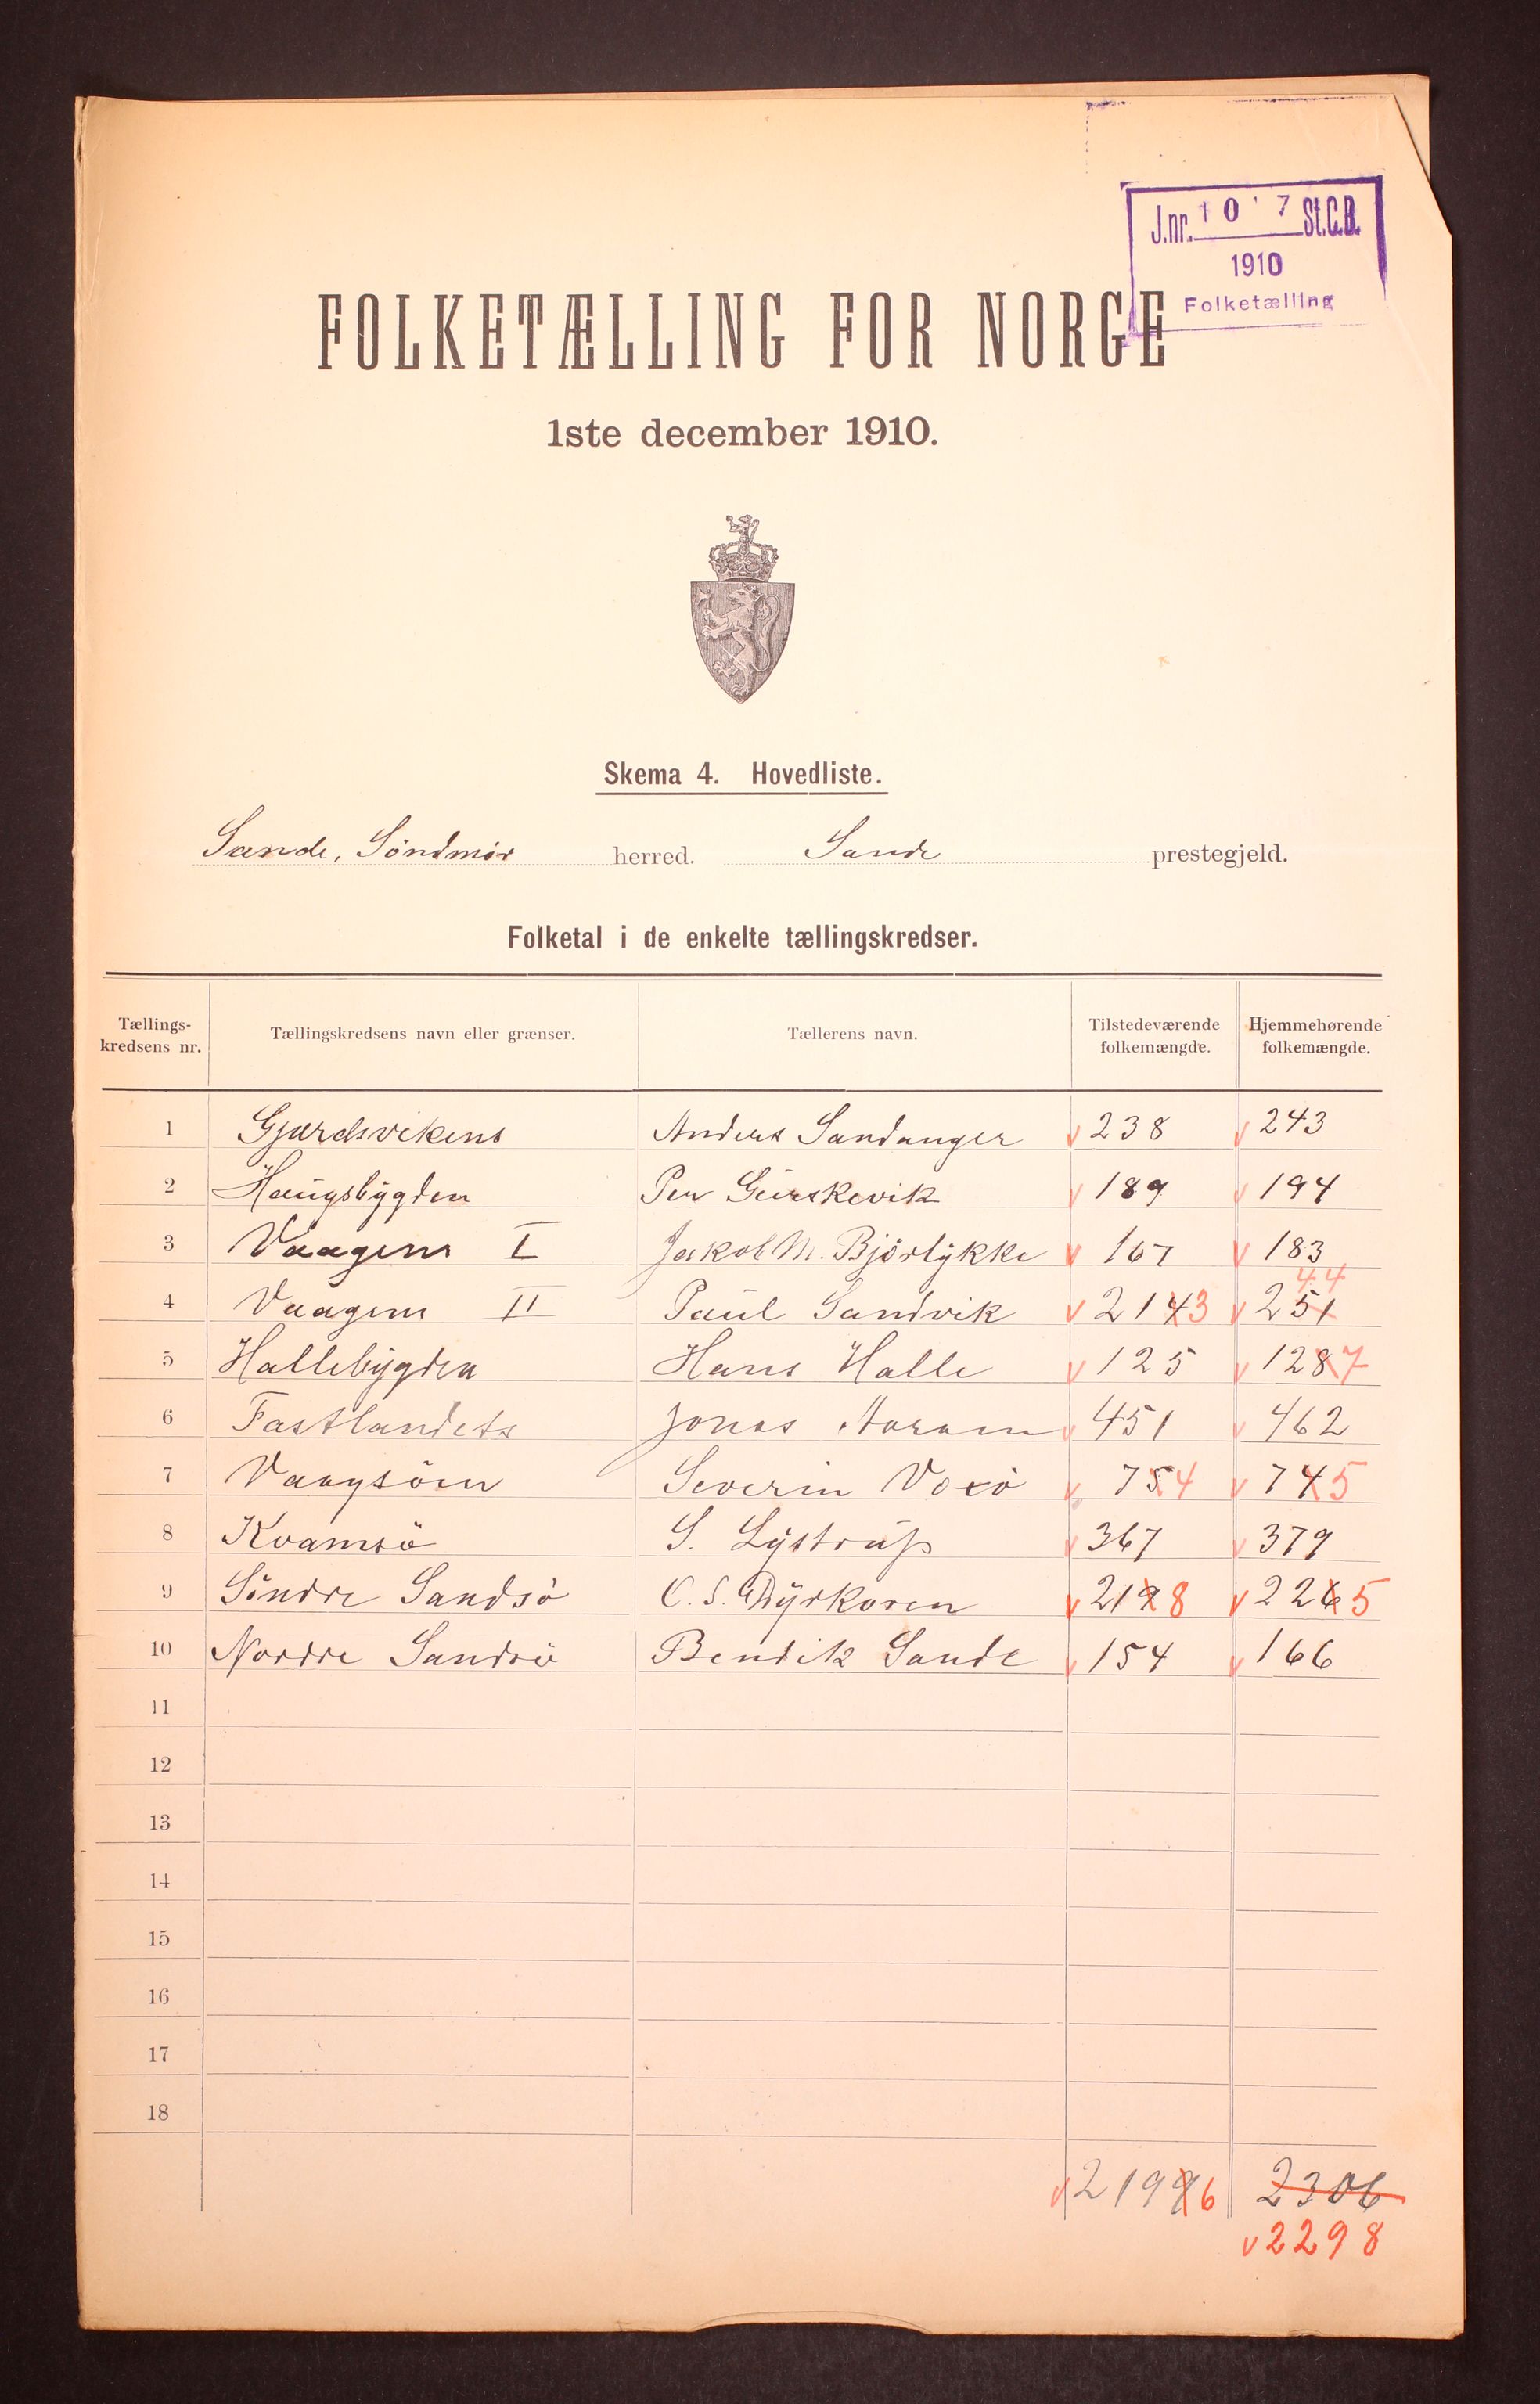 J.nr. 10 7 St.C.B.
1910
Folketælling
FOLKETÆLLING FOR NORGE
1ste december 1910.
Skema 4. Hovedliste.
Sande, Söndmör herred. Sande prestegjeld.
Folketal i de enkelte tællingskredser.
Tællings-kredsens nr. Tællingskredsens navn eller grænser. Tællerens navn. Tilstedeværende folkemængde. Hjemmehørende folkemængde.
1 Gjærdsvikens Anders Sandanger v 238 v 243
2 Haugsbygden Per Gurskevik v 189 v 194
3 Vaagens I Jakob M. Bjørlykke v 167 v 183
4 Vaagens II Paul Sandvik v 2143 v 251 44
5 Hallebygden Hans Halle v 125 v 1287
6 Fastlandets Jonas Aaram v 451 v 462
7 Vaagsöens Severin Voxö v 754 v 745
8 Kvamsö S. Lystrup v 367 v 379
9 Söndre Sandsö C. S. Dyrkoren v 2198 v 2265
10 Nordre Sandsö Bendik Sande v 154 v 166
11
12
13
14
15
16
17
18
v 21996 2306
v 2298